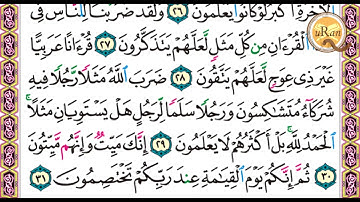 الْآخِرَةِ أَكْبَرُ لَوْ كَانُوا يَعْلَمُونَ ٢٦ وَلَقَدْ ضَرَبْنَا لِلنَّاسِ فِي
هَٰذَا الْقُرْءَانِ مِن كُلِّ مَثَلٍ لَّعَلَّهُمْ يَتَذَكَّرُونَ ٢٧ قُرْءَانًا عَرَبِيًّا
غَيْرَ ذِي عِوَجٍ لَّعَلَّهُمْ يَتَّقُونَ ٢٨ ضَرَبَ اللَّهُ مَثَلًا رَّجُلًا فِيهِ
شُرَكَاءُ مُتَشَاكِسُونَ وَرَجُلًا سَلَمًا لِّرَجُلٍ هَلْ يَسْتَوِيَانِ مَثَلًا ۚ
الْحَمْدُ لِلَّهِ ۚ بَلْ أَكْثَرُهُمْ لَا يَعْلَمُونَ ٢٩ إِنَّكَ مَيِّتٌ وَإِنَّهُم مَّيِّتُونَ
٣٠ ثُمَّ إِنَّكُمْ يَوْمَ الْقِيَامَةِ عِندَ رَبِّكُمْ تَخْتَصِمُونَ ٣١
uRan